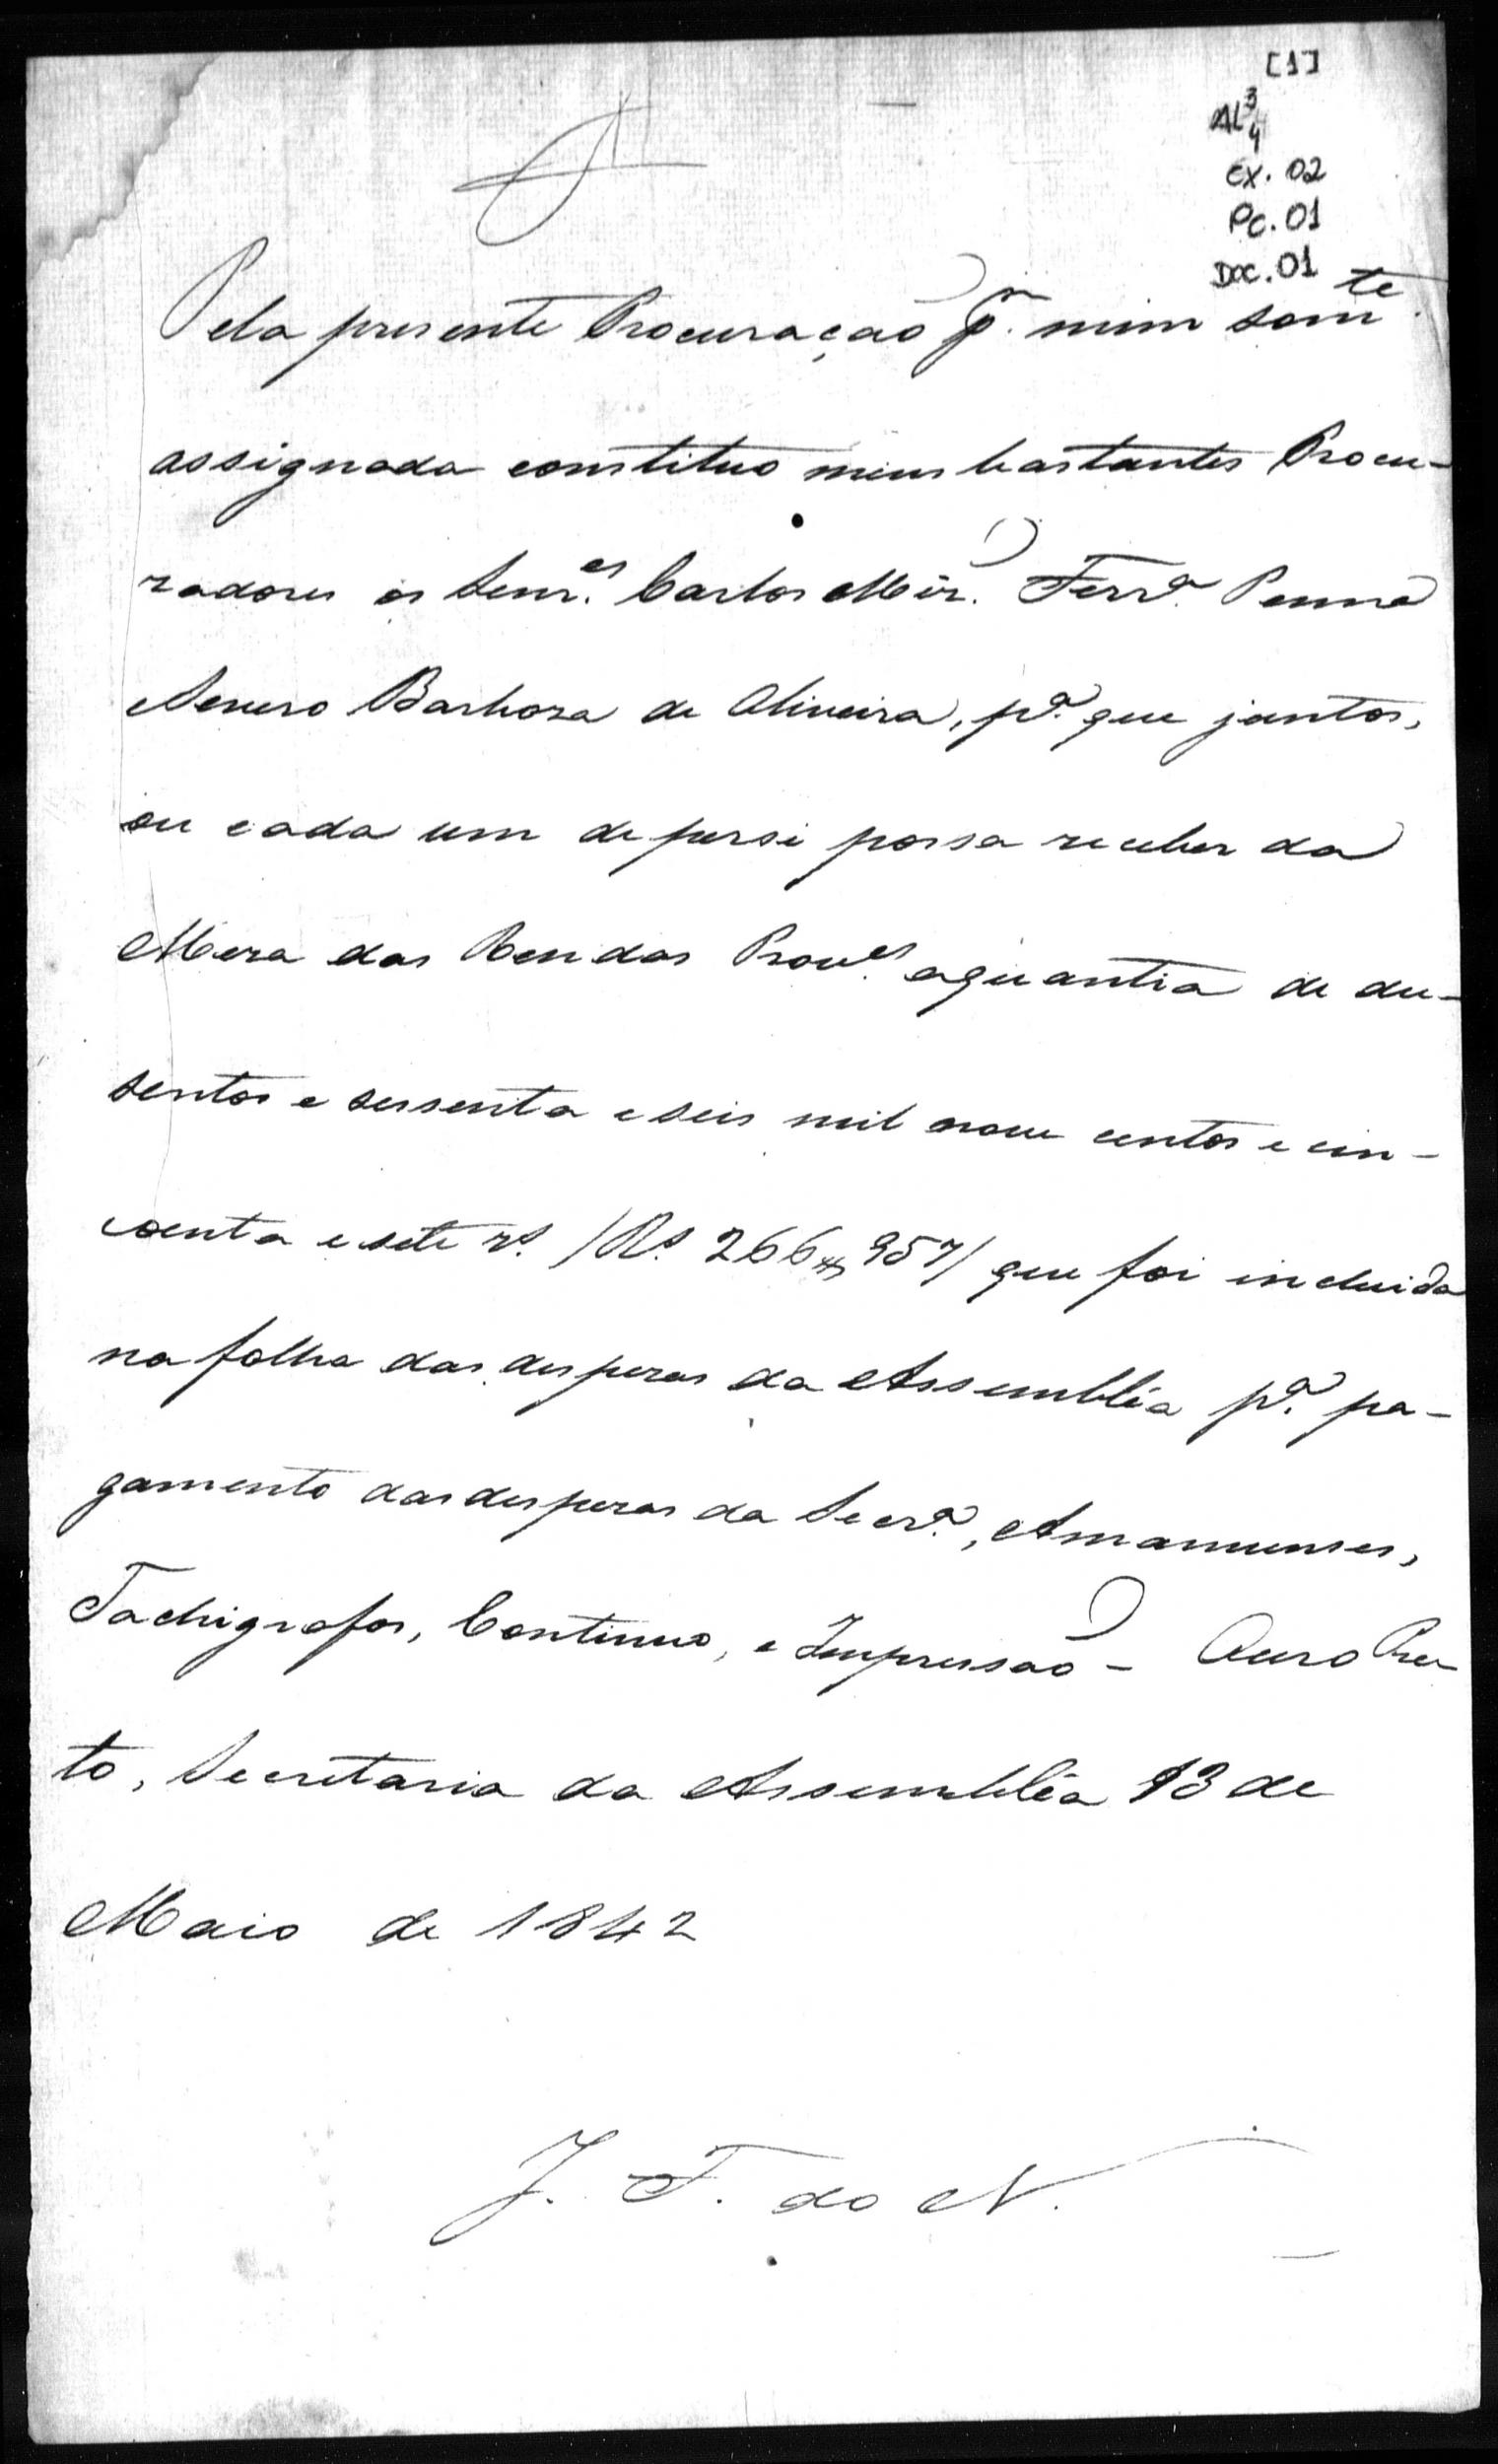 [1]
AL 3/4
Cx. 02
Pc. 01
Doc. 01
Pela presente Procuração pr. mim somte.
assignada constituo meus bastantes Procu-
radores os Senr.es Carlos Ferra. Penna
Barboza de Oliveira, pa. que juntos,
ou cada um de persi possa receber da
Meza das Rendas Prov.es aquantia de du-
sentos e sessenta e seis mil nove centos e cin-
coenta e sete rs. /Rs. 266$957/ que foi incluida
na folha das despezas da Assembléa pa. pa-
gamento das despezas da Secra., Amanuenses,
Tachigrafos, Continuo, e Impressão - Ouro Pre-
to, Secretaria da Assembléa 13 de
Maio de 1842
J. F. do N.